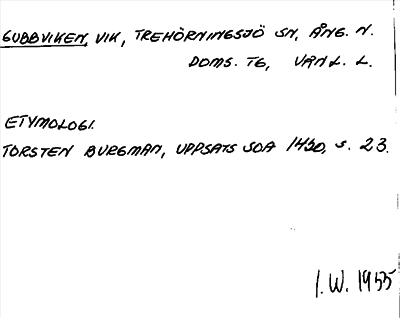 GUBBVIKEN, VIK, TREHÖRNINGSJÖ SN, ÅNG. N.
DOMS. TG, VÄN L. L.
ETYMOLOGI.
TORSTEN BURGMAN, UPPSATS SOA 1430, S. 23.
I. W. 1955